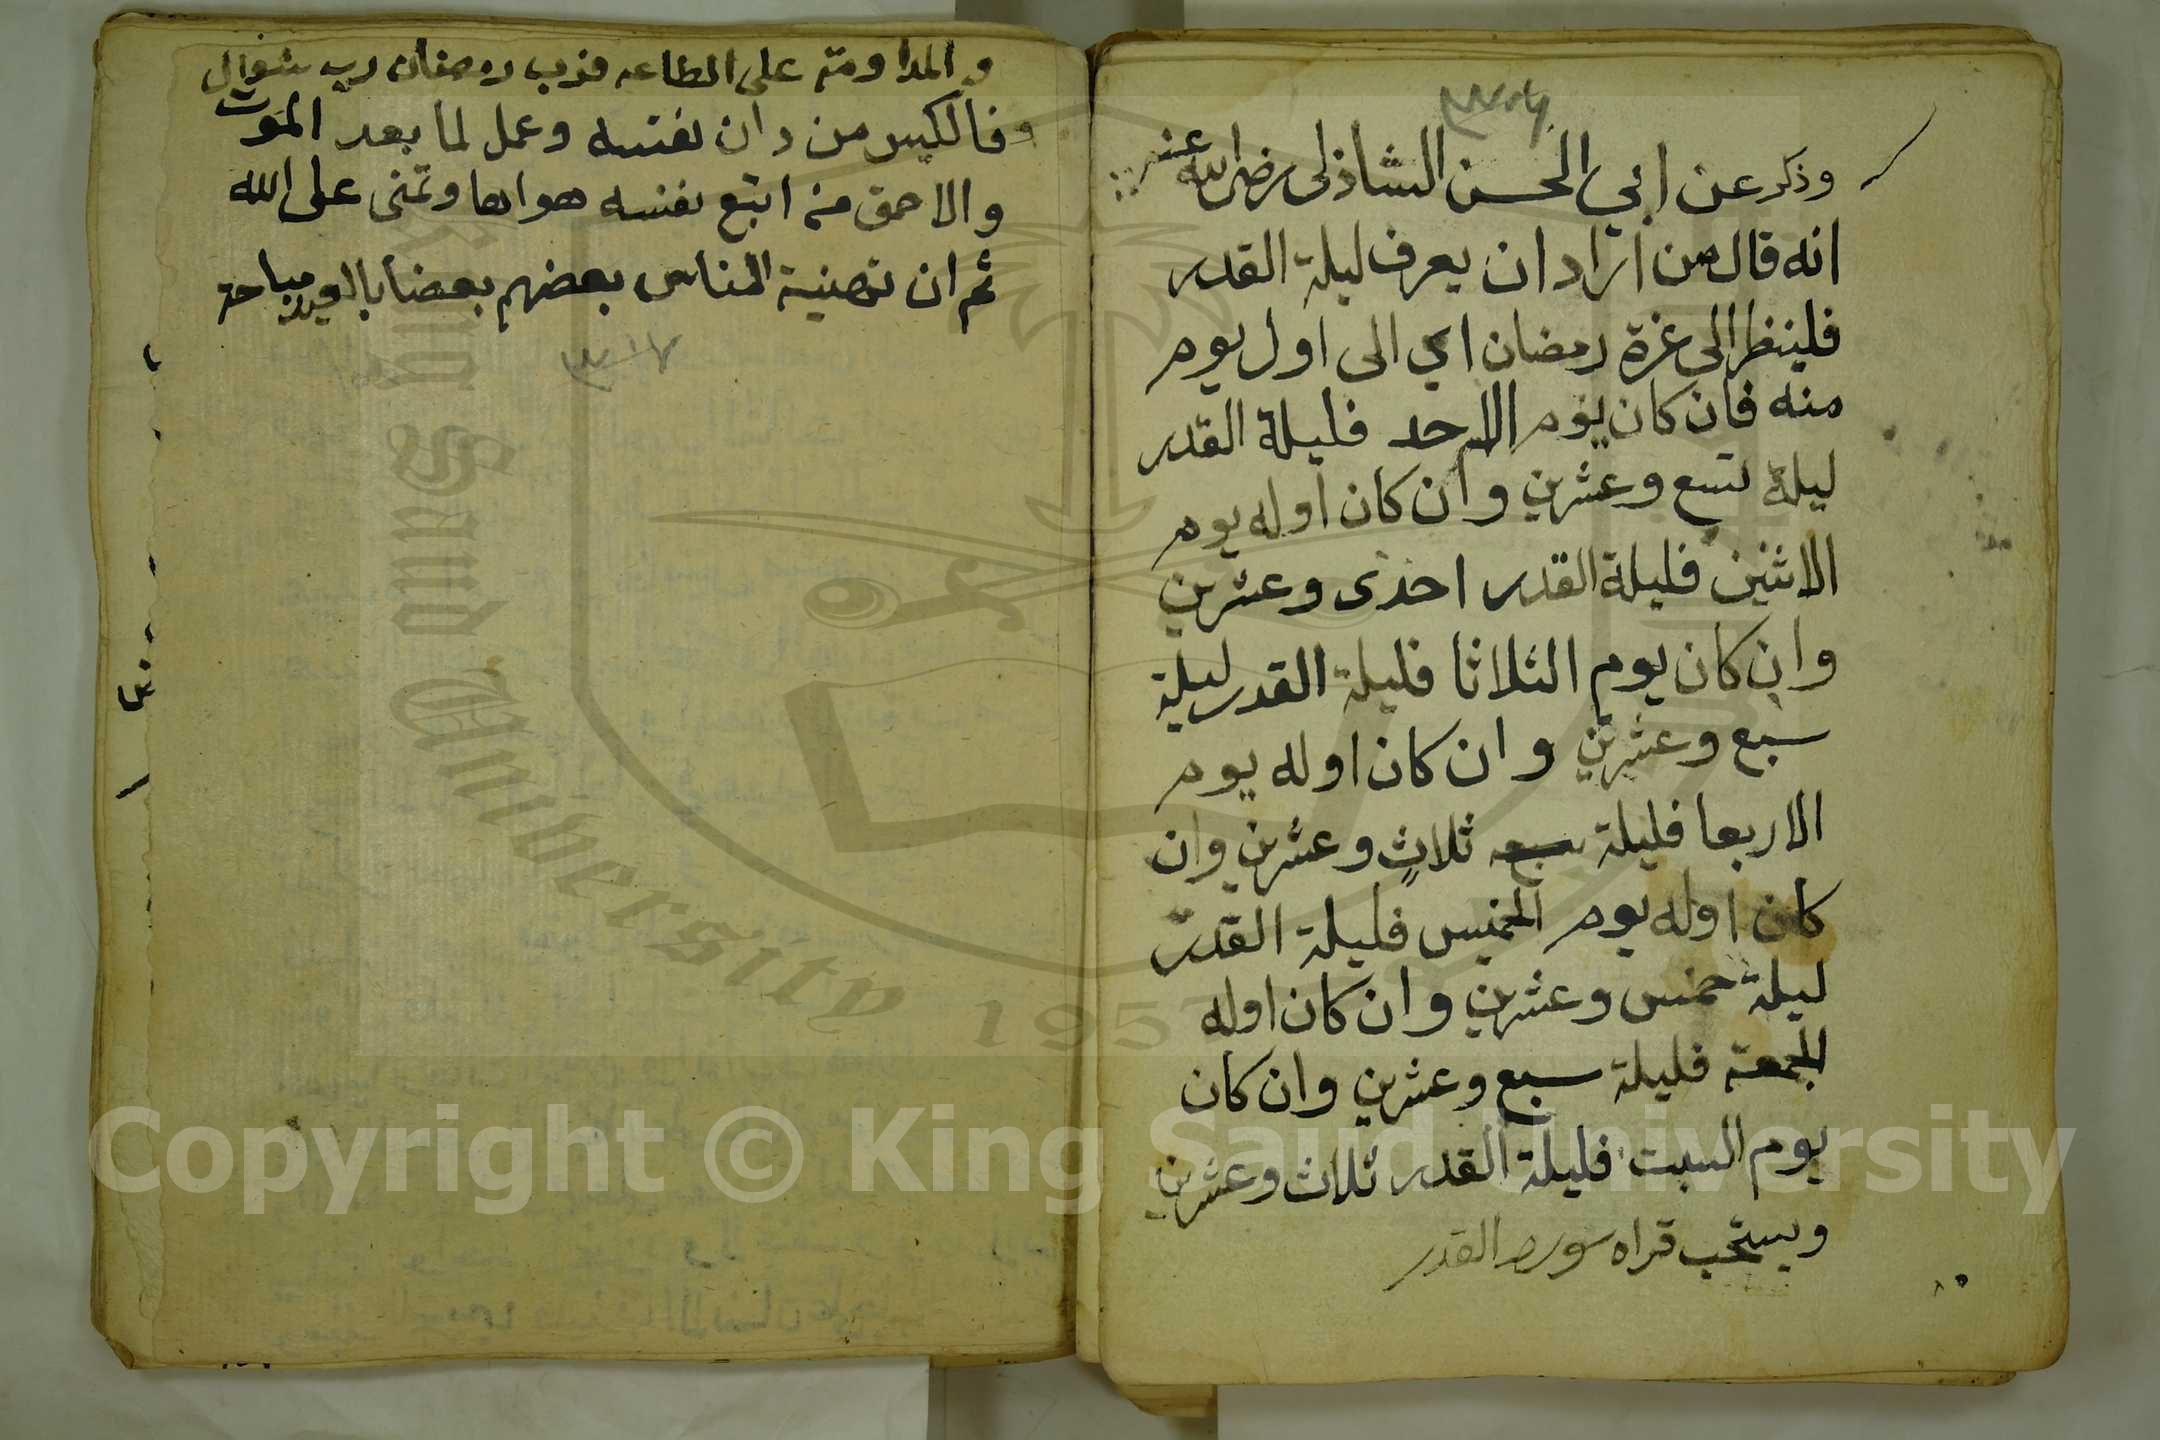 وذكر عن ابي الحسن الشاذلى رضى الله عنه
انه قال من اراد ان يعرف ليلة القدر
فلينظر الى غرة رمضان اي الى اول يوم
منه فان كان يوم الاحد فليلة القدر
ليلة تسع وعشرين وان كان اوله يوم
الاثنين فليلة القدر احدى وعشرين
وان كان يوم الثلاثا فليلة القدر ليلة
سبع وعشرين وان كان اوله يوم
الاربعا فليلة سبعه ثلاث وعشرين وان
كان اوله يوم الخميس فليلة القدر
ليلة خمس وعشرين وان كان اوله
الجمعة فليلة سبع وعشرين وان كان
يوم السبت فليلة القدر ثلاث وعشرين
ويستحب قراه سوره القدر
والمداومة على الطاعه فرب رمضان رب شوال
فالكيس من دان نفسه وعمل لما بعد الموت
والاحمق من اتبع نفسه هواها وتمنى على الله
ثم ان تهنية الناس بعضهم بعضا بالعيد مباحة
King Saud University 1957
Copyright © King Saud University